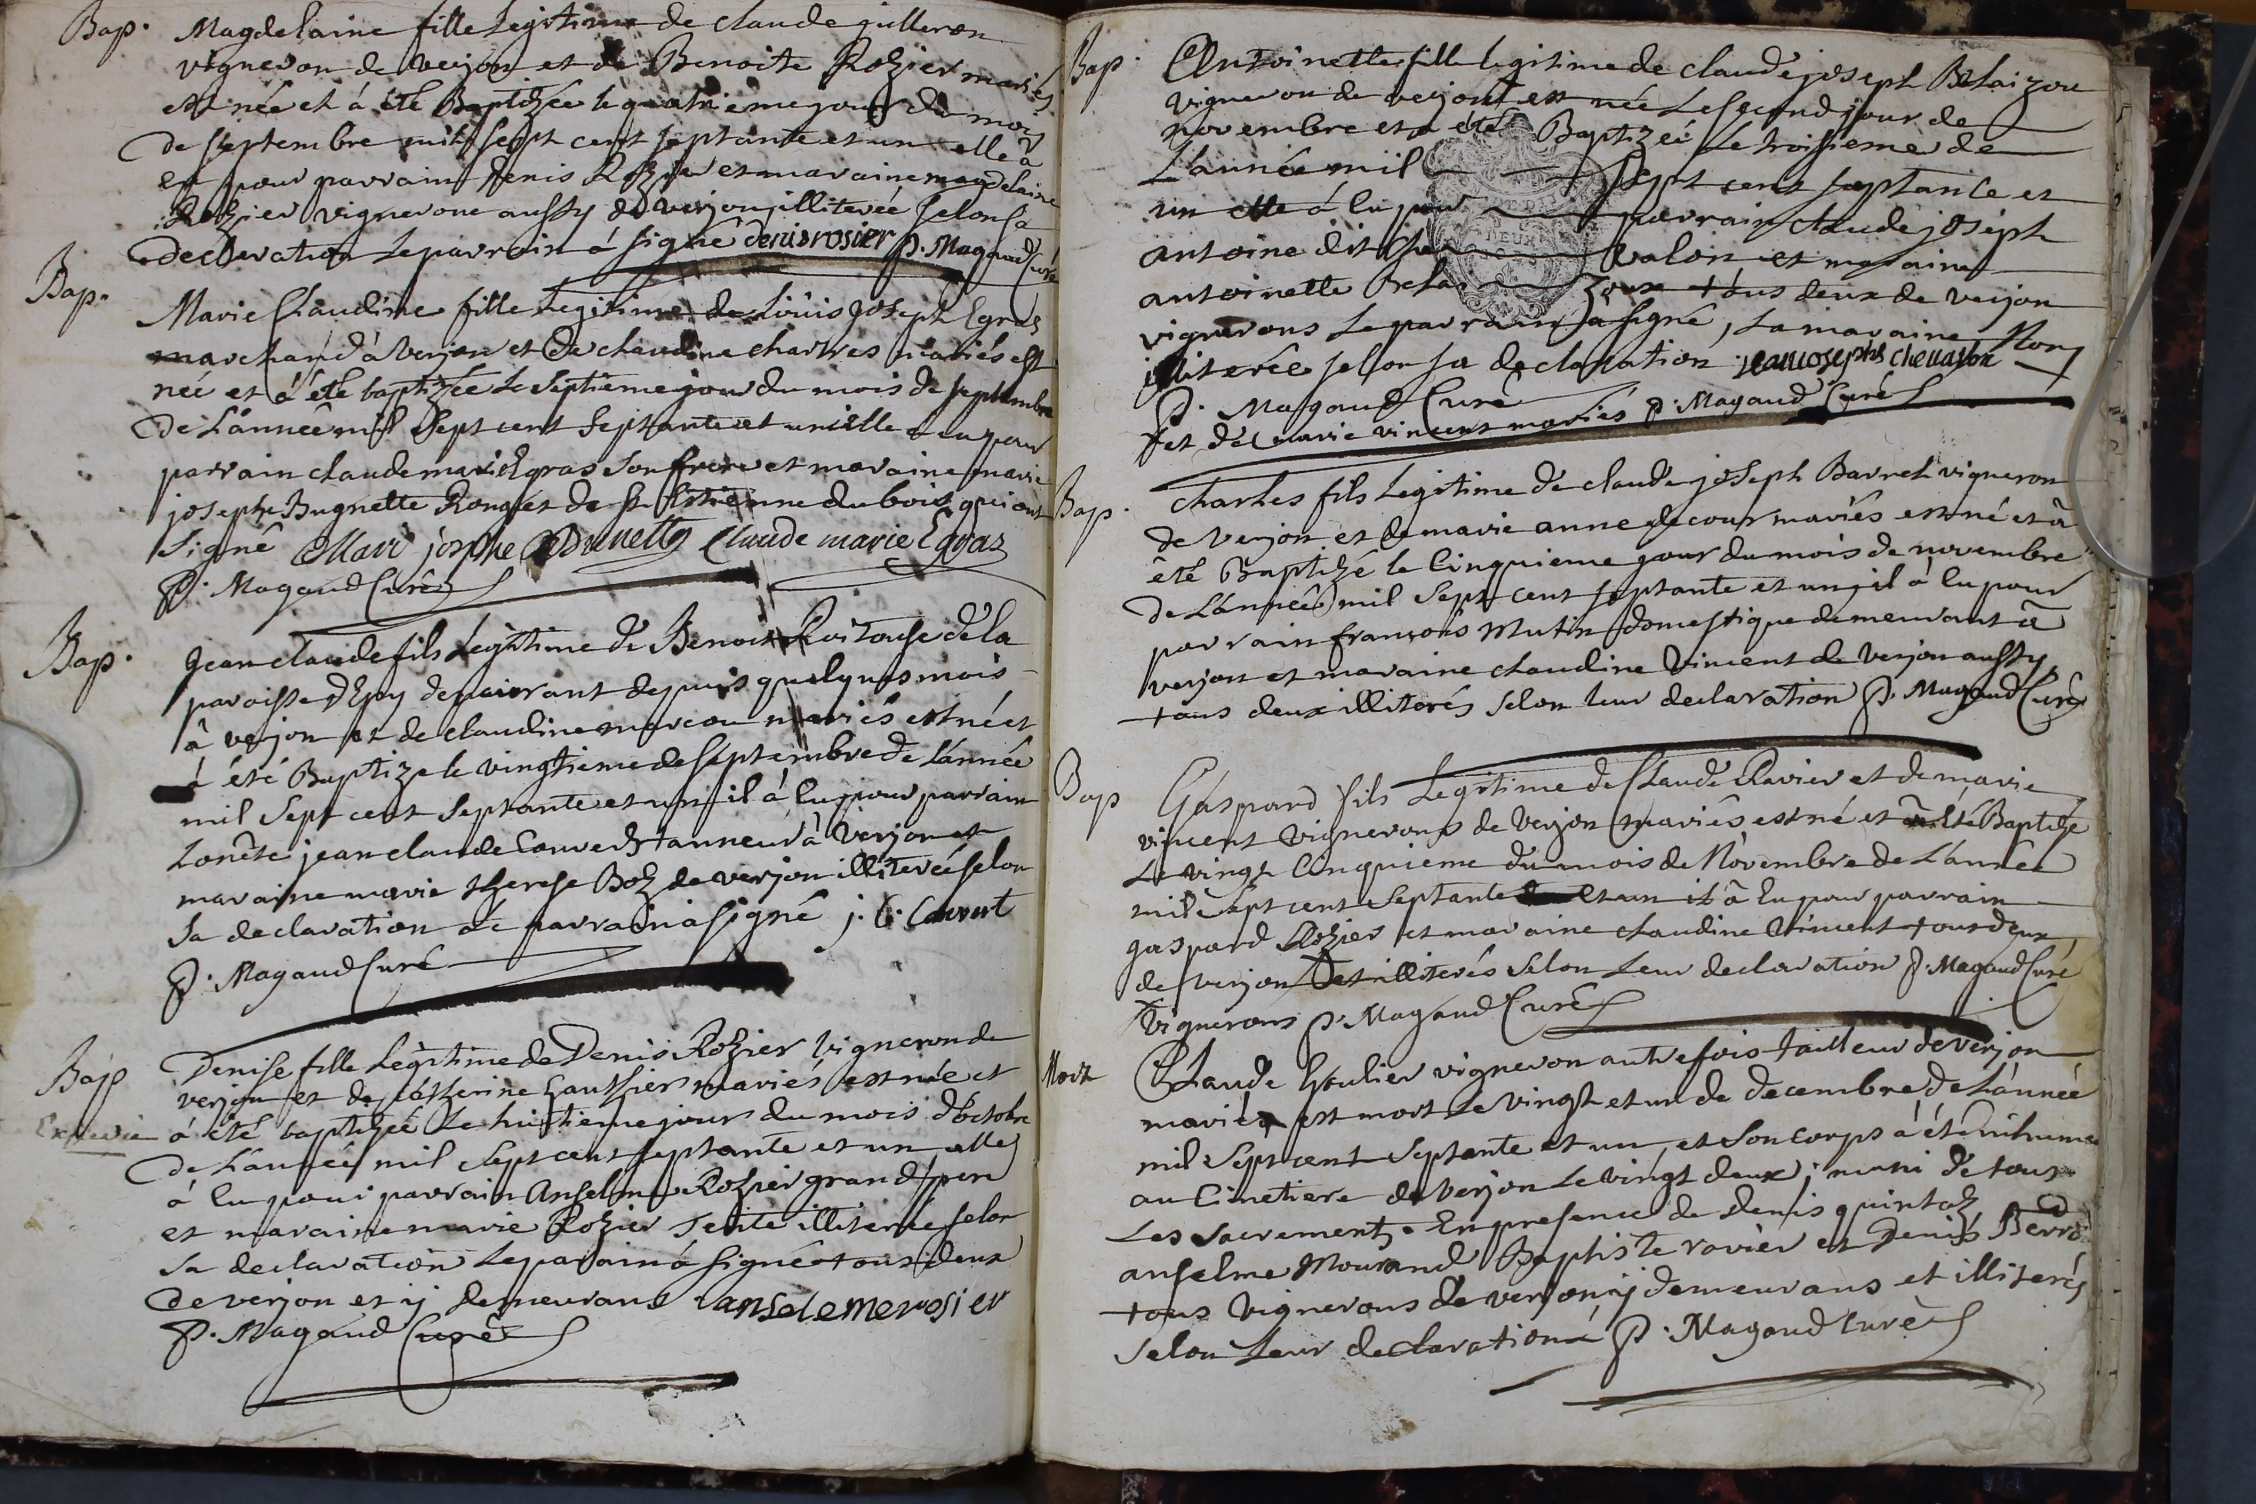 Bap. Magdelaine fille Legitime de claude gulleron
vigneron de verjon et de Benoite Rozier mariés
est née et à été Baptizée le quatrieme jour du mois
de septembre mil sept cent septante et un elle à
eu pour parrain denis Rozier et maraine magdelaine
Rozier vignerone aussy de verjon illiterée selon sa
declaration Le parrain à signé denis rosier P. Magaud Curé
Bap. Marie Claudine fille Legitime de Loüis joseph Egraz
marchand à verjon et de claudine chartres mariés est
née et à été baptizée Le septieme jour du mois de septembre
de L'année mil sept cent septante et un elle a eu pour
parrain claude marie Egras son frere et maraine marie
josephe Bugnette de st Estienne du bois qui ont
signé Mari josphe Claude marie Egraz
P. Magaud Curé
Bap. Jean claude fils Legitime de Benoit de la
paroisse d'Epy demeurant depuis quelques mois
à verjon et de claudine marcou mariés est né et
à été Baptize le vingtieme de septembre de L'année
mil sept cent septante et un il à Eu pour parrain
honête jean claude Couvert tanneur à verjon et
maraine marie therese Boz de verjon illiterée selon
sa declaration le parrain a signé j. C. Couvert
P. Magaud Curé
Bap Denise fille Legitime de Denis Rozier vigneron de
verjon et de Catherine Gauthier mariés est née et
à été baptizée Le huitieme jour du mois d'octobre
de L'année mil sept cent septante et un elle
à Eu pour parrain Anselme Rozier grand pere
et maraine marie Rozier tente illiterée selon
sa declaration Le parain à signé tous deux
de verjon et ij demeurans anselemerosier
P. Magaud Curé
Bap. Antoinette fille legitime de claude joseph Belaizou
vigneron de verjon est née Le second jour de
novembre et a eté Baptizée Le troisieme de
L'année mil sept cent septante et
un elle à Eu pour parrain claude joseph
antoine dit che valon et maraine
antoinette Belai zoux tous deux de verjon
vignerons Le parrain a signé, La maraine Non
illiterée selon sa declaration jean iosephe chevalon
P. Magaud Curé
et de marie vincent mariés P. Magaud Curé
Bap. Charles fils Legitime de claude joseph Barret vigneron
de verjon et de marie anne decour mariés est né et à
été Baptizé le Cinquieme jour du mois de novembre
de L'année mil sept cent septante et un il à Eu pour
parrain françois Mutin domestique demeurant à
verjon et maraine claudine Vincent de verjon aussy
tous deux illiterés selon leur declaration P. Magaud Curé
Bap Gaspard fils Legitime de Claude Ravier et de marie
vincent vignerons de Verjon mariés est né et à Eté Baptizé
Le vingt Cinquieme du mois de Novembre de L'année
mil sept cent septante et un il à Eu pour parrain
gaspard Rozier et maraine claudine Vincent tous deux
de verjon et illiterés selon Leur declaration P. Magaud Curé
vignerons P. Magaud Curé
Mort Claude Goulier vigneron autrefois tailleur de verjon
mariés est mort Le vingt et un de decembre de L'année
mil sept cent septante et un, et son corps à été inhumé
au Cimetiere de verjon Le vingt deux; muni de tous
Les sacrements. En presence de denis quintaz
anselme Mourand Baptiste ravier et Denis
tous vignerons de verjon ij demeurans et illiterés
selon Leur declaration P. Magaud Curé